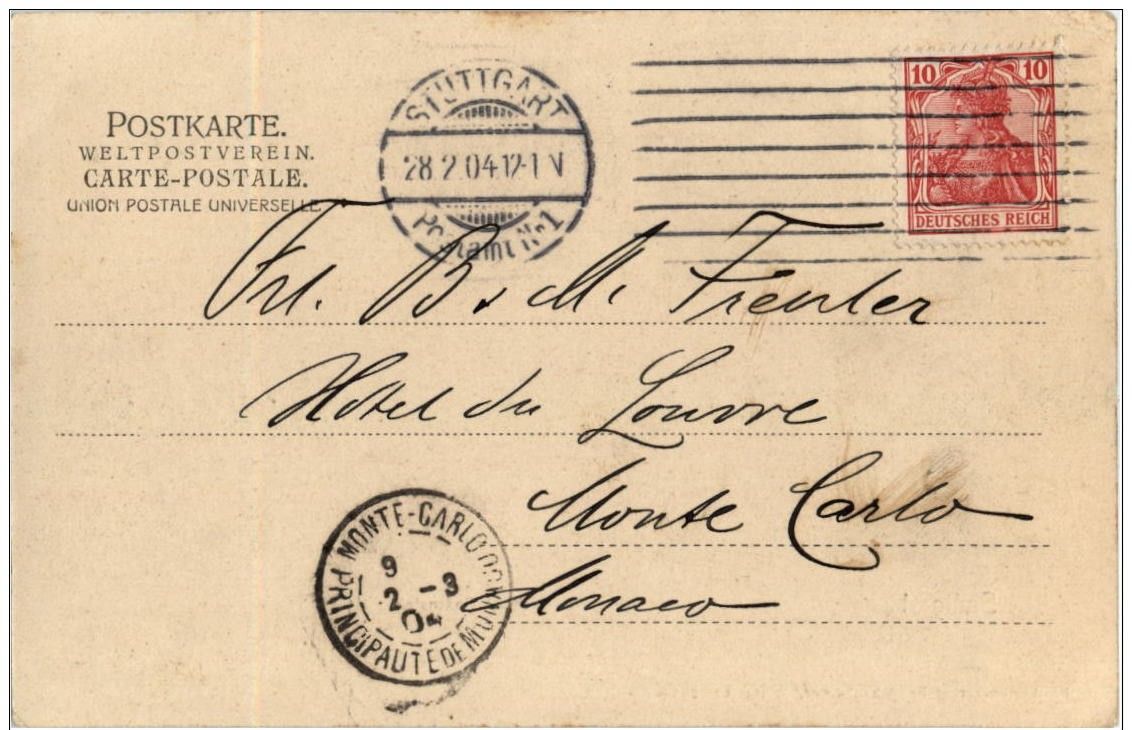 POSTKARTE.
WELTPOSTVEREIN.
CARTE-POSTALE.
UNION POSTALE UNIVERSELLE.
STUTTGART
28.2.04.12-1 V
Nr. 1
10 10
DEUTSCHES REICH
Frl. B. & M. Frenler
Hôtel du Louvre
Monte Carlo
Monaco
MONTE-CARLO
9
2 -3
04
PRINCIPAUTÉ DE